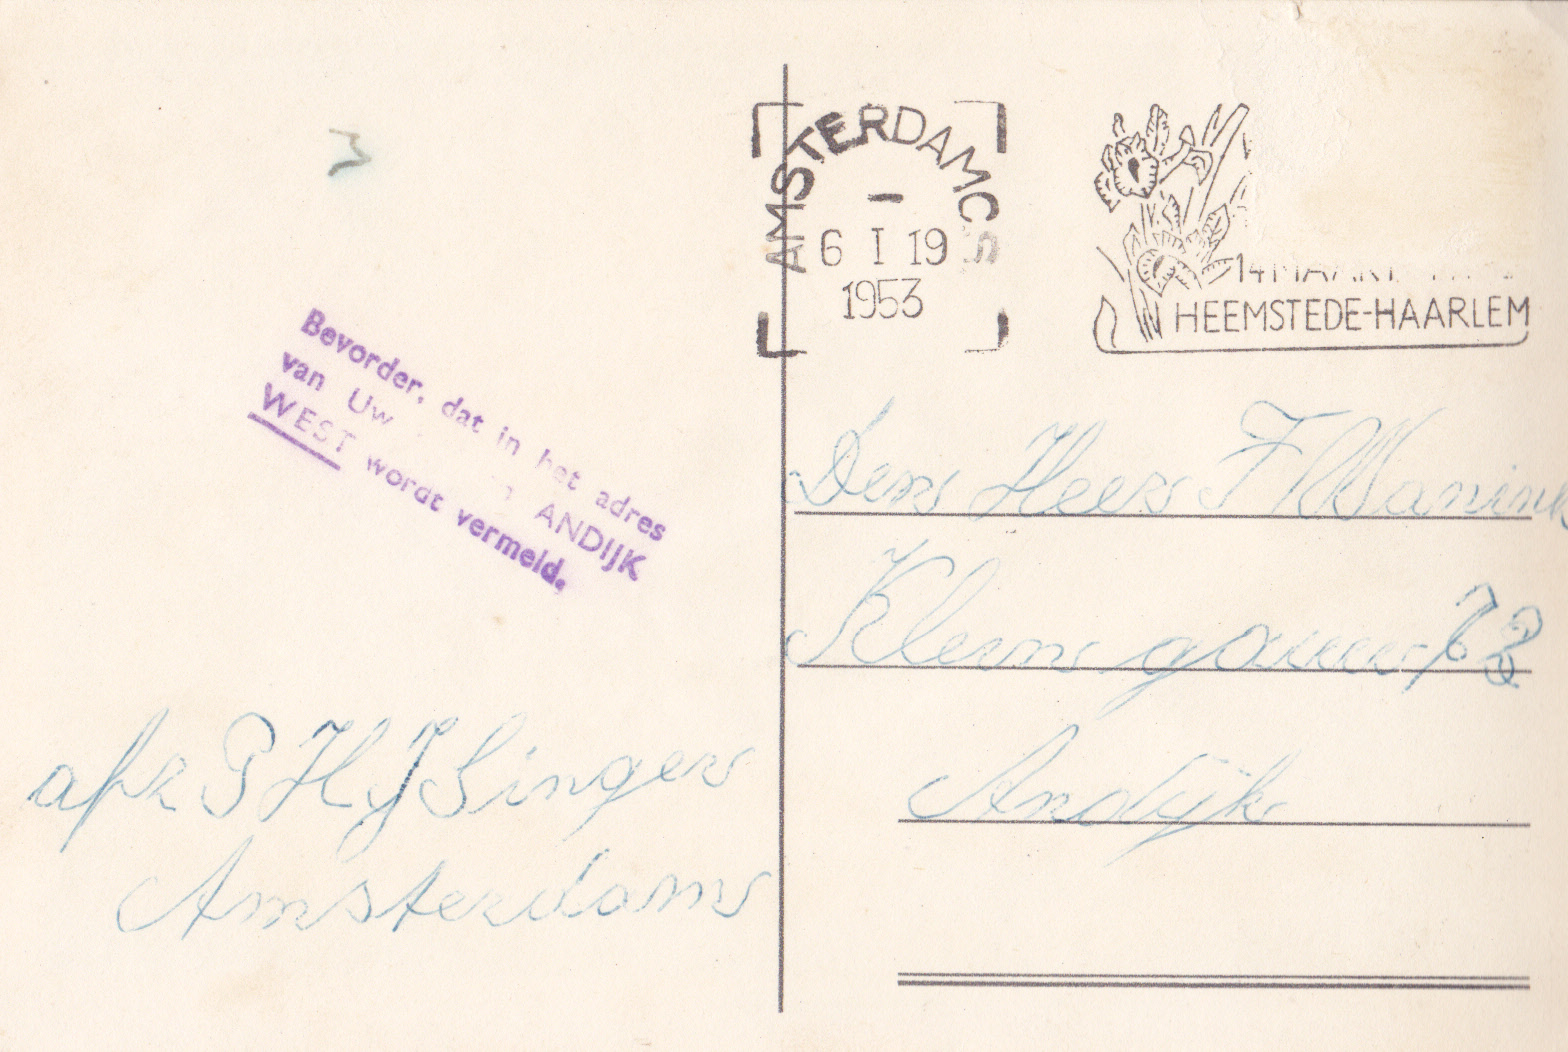 3
AMSTERDAM CS
6 I 19
1953
14 MAART
HEEMSTEDE-HAARLEM
Bevorder, dat in het adres
van Uw ANDIJK
WEST wordt vermeld.
Den Heer F Manink
Klein gouw 73
Andijk
afz P H J Singer
Amsterdam